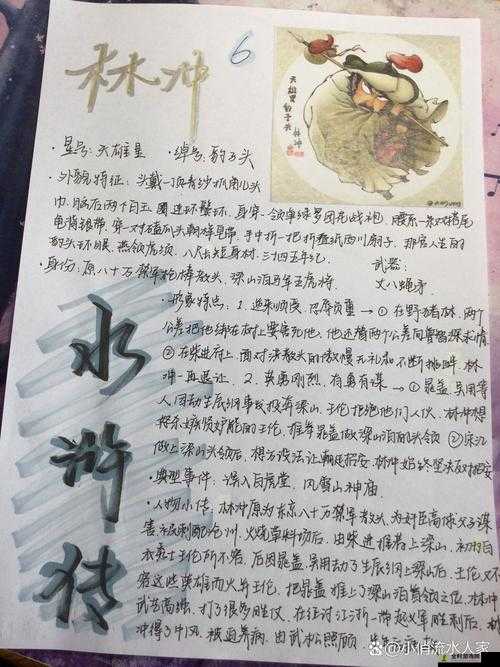 林冲
6
天雄星
豹子头
林冲
·星号:天雄星 ·绰号:豹子头
·外貌特征:头戴一顶青纱抓角儿头
巾,脑后两个白玉圈连环鬓环,身穿一领单绿罗团花战袍,腰系一条双搭尾
龟背银带,穿一对磕瓜头朝样皂靴,手中折一把折叠纸西川扇子,那官人生的
豹头环眼,燕颔虎须,八尺长短身材,三十四五年纪
·身份:原八十万禁军枪棒教头,梁山泊马军五虎将
武器:
丈八蛇矛
水浒传
·性格特点:1.逆来顺受,忍辱负重→①在野猪林,两个
公差把他绑在树上要害死他,他还替两个公差向鲁智深求情
②在柴进府上,面对洪教头的傲慢无礼和不断挑衅,林
冲一再退让. 2.英勇刚烈,有勇有谋→①晁盖,吴用等
人因劫生辰纲事发投奔梁山,王伦拒绝他们入伙,林冲
杀了嫉贤妒能的王伦,推举晁盖做梁山泊的头领②宋江
做上梁山头领后,想方设法让朝廷招安,林冲始终坚决反对招安
·典型事件:误入白虎堂,风雪山神庙
·人物小传:林冲原为东京八十万禁军教头,为奸臣高俅父子谋
害被刺配沧州,火烧草料场后,由柴进推荐上梁山,初
王伦所不容,后因晁盖,吴用劫了生辰纲上梁山后,王伦又不
容这些英雄而火并王伦,把晁盖推上了梁山泊首领之位,林冲
武艺高强,打了很多胜仗,在征讨江浙一带起义军胜利后,林
冲得了中风,被迫养病,由武松照顾,
@小俏流水人家